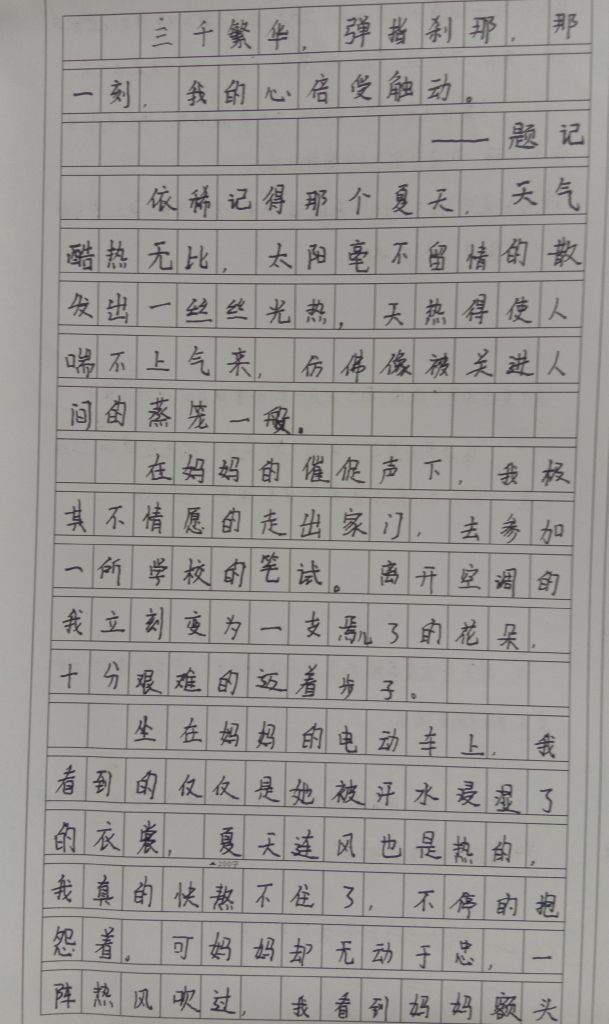 三千繁华，弹指刹那，那
一刻，我的心倍受触动。
——题记
依稀记得那个夏天，天气
酷热无比，太阳毫不留情的散
发出一丝丝光热，天热得使人
喘不上气来，仿佛像被关进人
间的蒸笼一般。
在妈妈的催促声下，我极
其不情愿的走出家门，去参加
一所学校的笔试。离开空调的
我立刻变为一支焉儿了的花朵，
十分艰难的迈着步子。
坐在妈妈的电动车上，我
看到的仅仅是她被汗水浸湿了
的衣裳，夏天连风也是热的，
▲200字
我真的快熬不住了，不停的抱
怨着。可妈妈却无动于忠，一
阵热风吹过，我看到妈妈额头